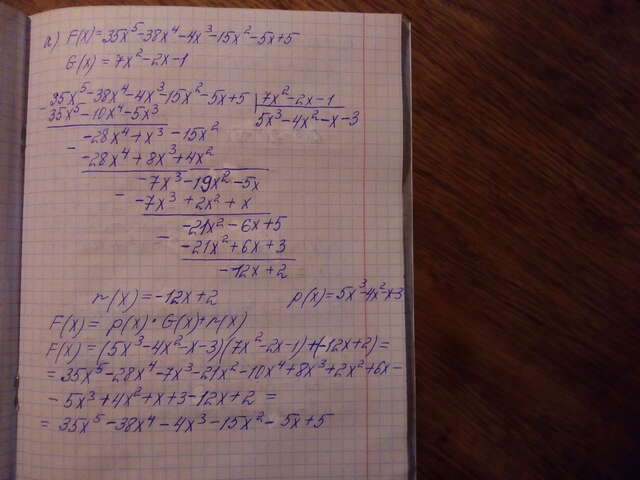 а) F(x)=35x⁵-38x⁴-4x³-15x²-5x+5
G(x)=7x²-2x-1
35x⁵-38x⁴-4x³-15x²-5x+5 | 7x²-2x-1
- 35x⁵-10x⁴-5x³ 5x³-4x²-x-3
-28x⁴+x³-15x²
- -28x⁴+8x³+4x²
-7x³-19x²-5x
- -7x³+2x²+x
-21x²-6x+5
- -21x²+6x+3
-12x+2
r(x)=-12x+2 p(x)=5x³-4x²-x-3
F(x)=p(x)·G(x)+r(x)
F(x)=(5x³-4x²-x-3)(7x²-2x-1)+(-12x+2)=
=35x⁵-28x⁴-7x³-21x²-10x⁴+8x³+2x²+6x-
-5x³+4x²+x+3-12x+2=
=35x⁵-38x⁴-4x³-15x²-5x+5